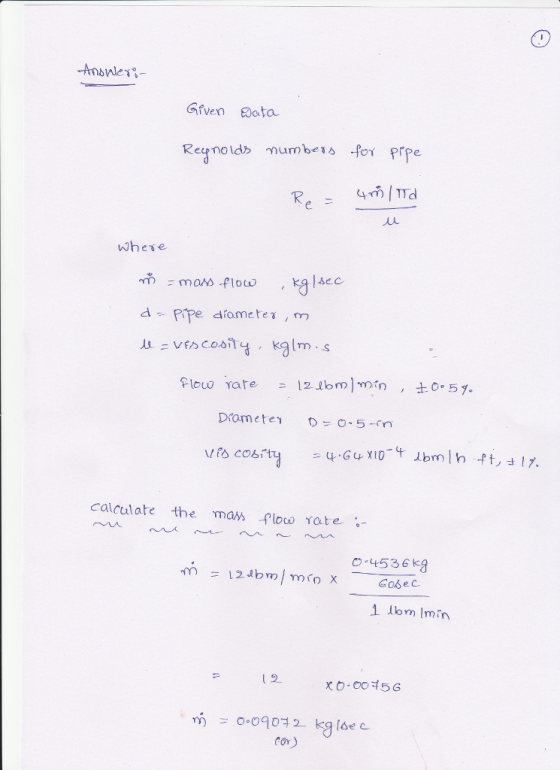 1
Answer:-
Given Data
Reynolds numbers for pipe
Re = 4ṁ/πd
μ
where
ṁ = mass flow , kg/sec
d = Pipe diameter, m
μ = viscosity, kg/m.s
flow rate = 12 lbm/min , ±0.5%
Diameter D = 0.5-in
Viscosity = 4.64×10⁻⁴ lbm/h ft, ±1%
calculate the mass flow rate :-
ṁ = 12 lbm/min × 0.4536kg
60sec
1 lbm/min
= 12 ×0.00756
ṁ = 0.09072 kg/sec
(or)